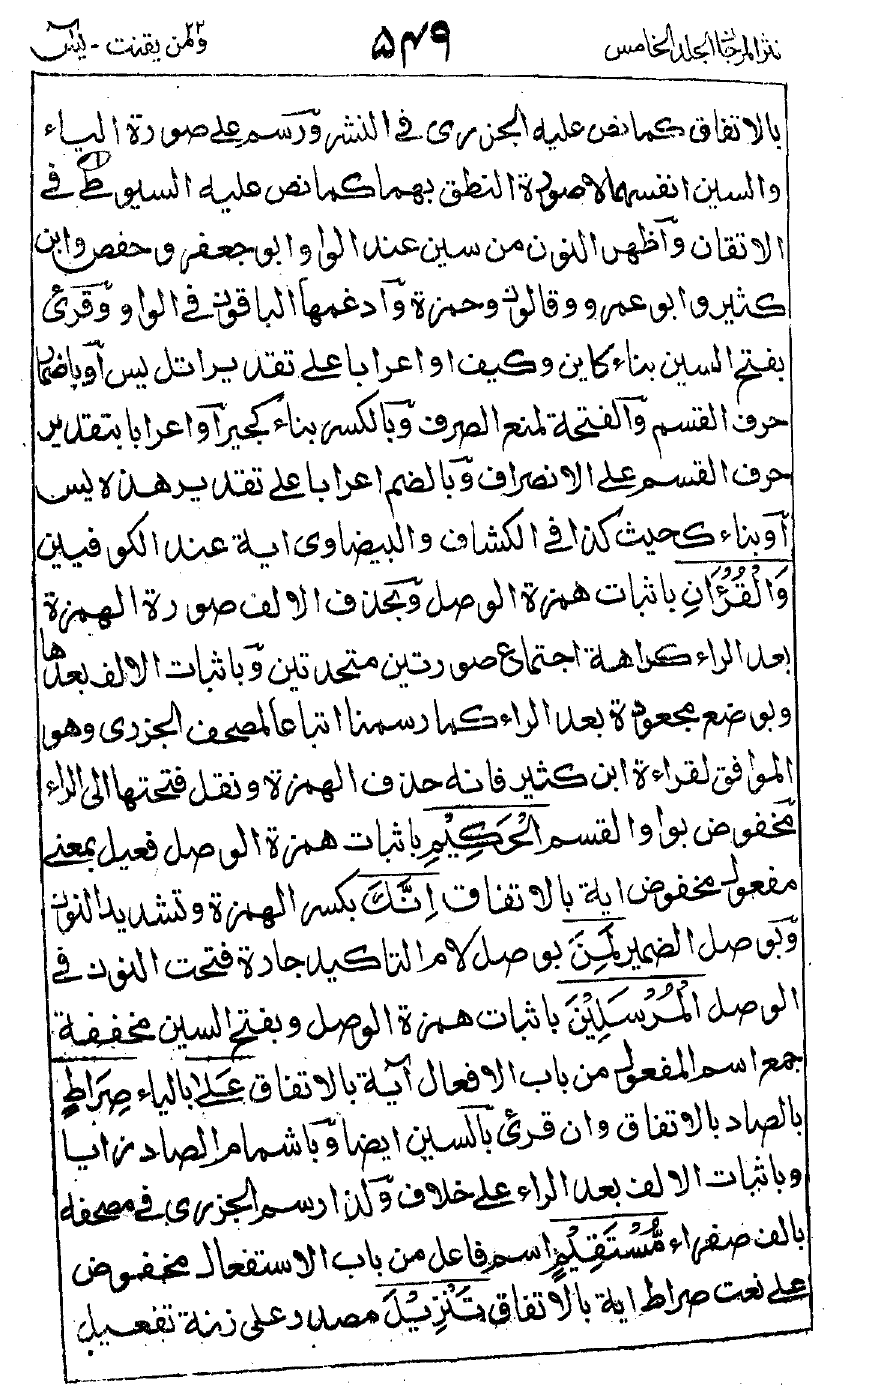 نثر المرجان المجلد الخامس ٥٤٩ ومن يقنت ٢٢ - يس
بالاتفاق كما نص عليه الجزرى فى النشر ورسم على صورة الياء
والسين انفسهما لا صورة النطق بهما كما نص عليه السيوطى فى
الاتقان وأظهر النون من سين عند الواو ابو جعفر وحفص وابن
كثير وابو عمرو وقالون وحمزة وأدغمها الباقون فى الواو وقرئ
بفتح السين بناء كاين وكيف او اعرابا على تقدير اتل يس أو باضمار
حرف القسم والفتحة لمنع الصرف وبالكسر بناء كجير أو اعرابا بتقدير
حرف القسم على الانصراف وبالضم اعرابا على تقدير هذه يس
أو بناء كحيث كذا فى الكشاف والبيضاوى اية عند الكوفيين
وَالْقُرْءَانِ باثبات همزة الوصل وبحذف الالف صورة الهمزة
بعد الراء كراهة اجتماع صورتين متحدتين وباثبات الالف بعدها
وبوضع مجعودة بعد الراء كما رسمنا اتباعا لمصحف الجزرى وهو
الموافق لقراءة ابن كثير فانه حذف الهمزة ونقل فتحتها الى الراء
مخفوض بواو القسم الْحَكِيْمِ باثبات همزة الوصل فعيل بمعنى
مفعول مخفوض اية بالاتفاق اِنَّكَ بكسر الهمزة وتشديد النون
وبوصل الضمير لَمِنَ بوصل لام التاكيد جادة فتحت النون فى
الوصل الْمُرْسَلِيْنَ باثبات همزة الوصل وبفتح السين مخففة
جمع اسم المفعول من باب الافعال آية بالاتفاق عَلٰى بالياء صِرَاطٍ
بالصاد بالاتفاق وان قرئ بالسين ايضا وباشمام الصاد زايا
وباثبات الالف بعد الراء على خلاف ولذا رسم الجزرى فى مصحفه
بالف صفراء مُّسْتَقِيْمٍ اسم فاعل من باب الاستفعال مخفوض
على نعت صراط اية بالاتفاق تَنْزِيْلَ مصدر على زنة تفعيل